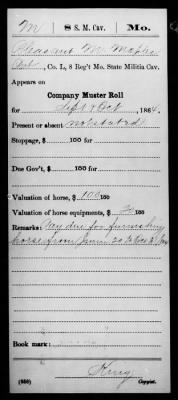 M | 8 S. M. Cav. | Mo.
Pleasant M. Maples
Pvt., Co. L, 8 Reg't Mo. State Militia Cav.
Appears on
Company Muster Roll
for Sept & Oct, 1864.
Present or absent not stated
Stoppage, $ 100 for
Due Gov't, $ 100 for
Valuation of horse, $ 100 100
Valuation of horse equipments, $ 20 100
Remarks: Pay due for furnishing
horse from June 30 to Oct 31
Book mark:
King
(359) Copyist.